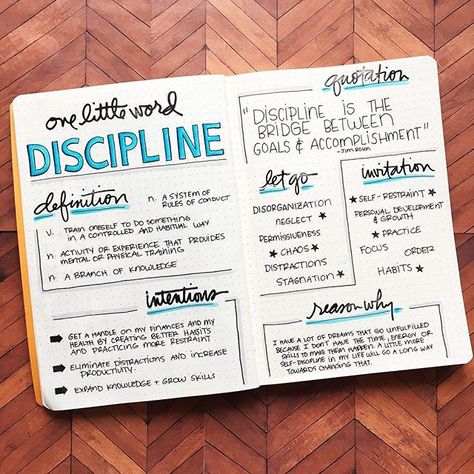 one little word
DISCIPLINE
definition
n. A SYSTEM OF
RULES OF CONDUCT
V. TRAIN ONESELF TO DO SOMETHING
IN A CONTROLLED AND HABITUAL WAY
n. ACTIVITY OR EXPERIENCE THAT PROVIDES
MENTAL OR PHYSICAL TRAINING
n. A BRANCH OF KNOWLEDGE
intentions
GET A HANDLE ON MY FINANCES AND MY
HEALTH BY CREATING BETTER HABITS
AND PRACTICING MORE RESTRAINT
ELIMINATE DISTRACTIONS AND INCREASE
PRODUCTIVITY.
EXPAND KNOWLEDGE + GROW SKILLS
quotation
"DISCIPLINE IS THE
BRIDGE BETWEEN
GOALS & ACCOMPLISHMENT"
-JIM ROHN
let go
DISORGANIZATION
NEGLECT ★
PERMISSIVENESS
★ CHAOS
DISTRACTIONS
STAGNATION ★
invitation
★ SELF-RESTRAINT ★
PERSONAL DEVELOPMENT
& GROWTH
★ PRACTICE
FOCUS ORDER
HABITS ★
reason why
I HAVE A LOT OF DREAMS THAT GO UNFULFILLED
BECAUSE I DON'T HAVE THE TIME, ENERGY OR
SKILLS TO MAKE THEM HAPPEN. A LITTLE MORE
SELF-DISCIPLINE IN MY LIFE WILL GO A LONG WAY
TOWARDS CHANGING THAT.